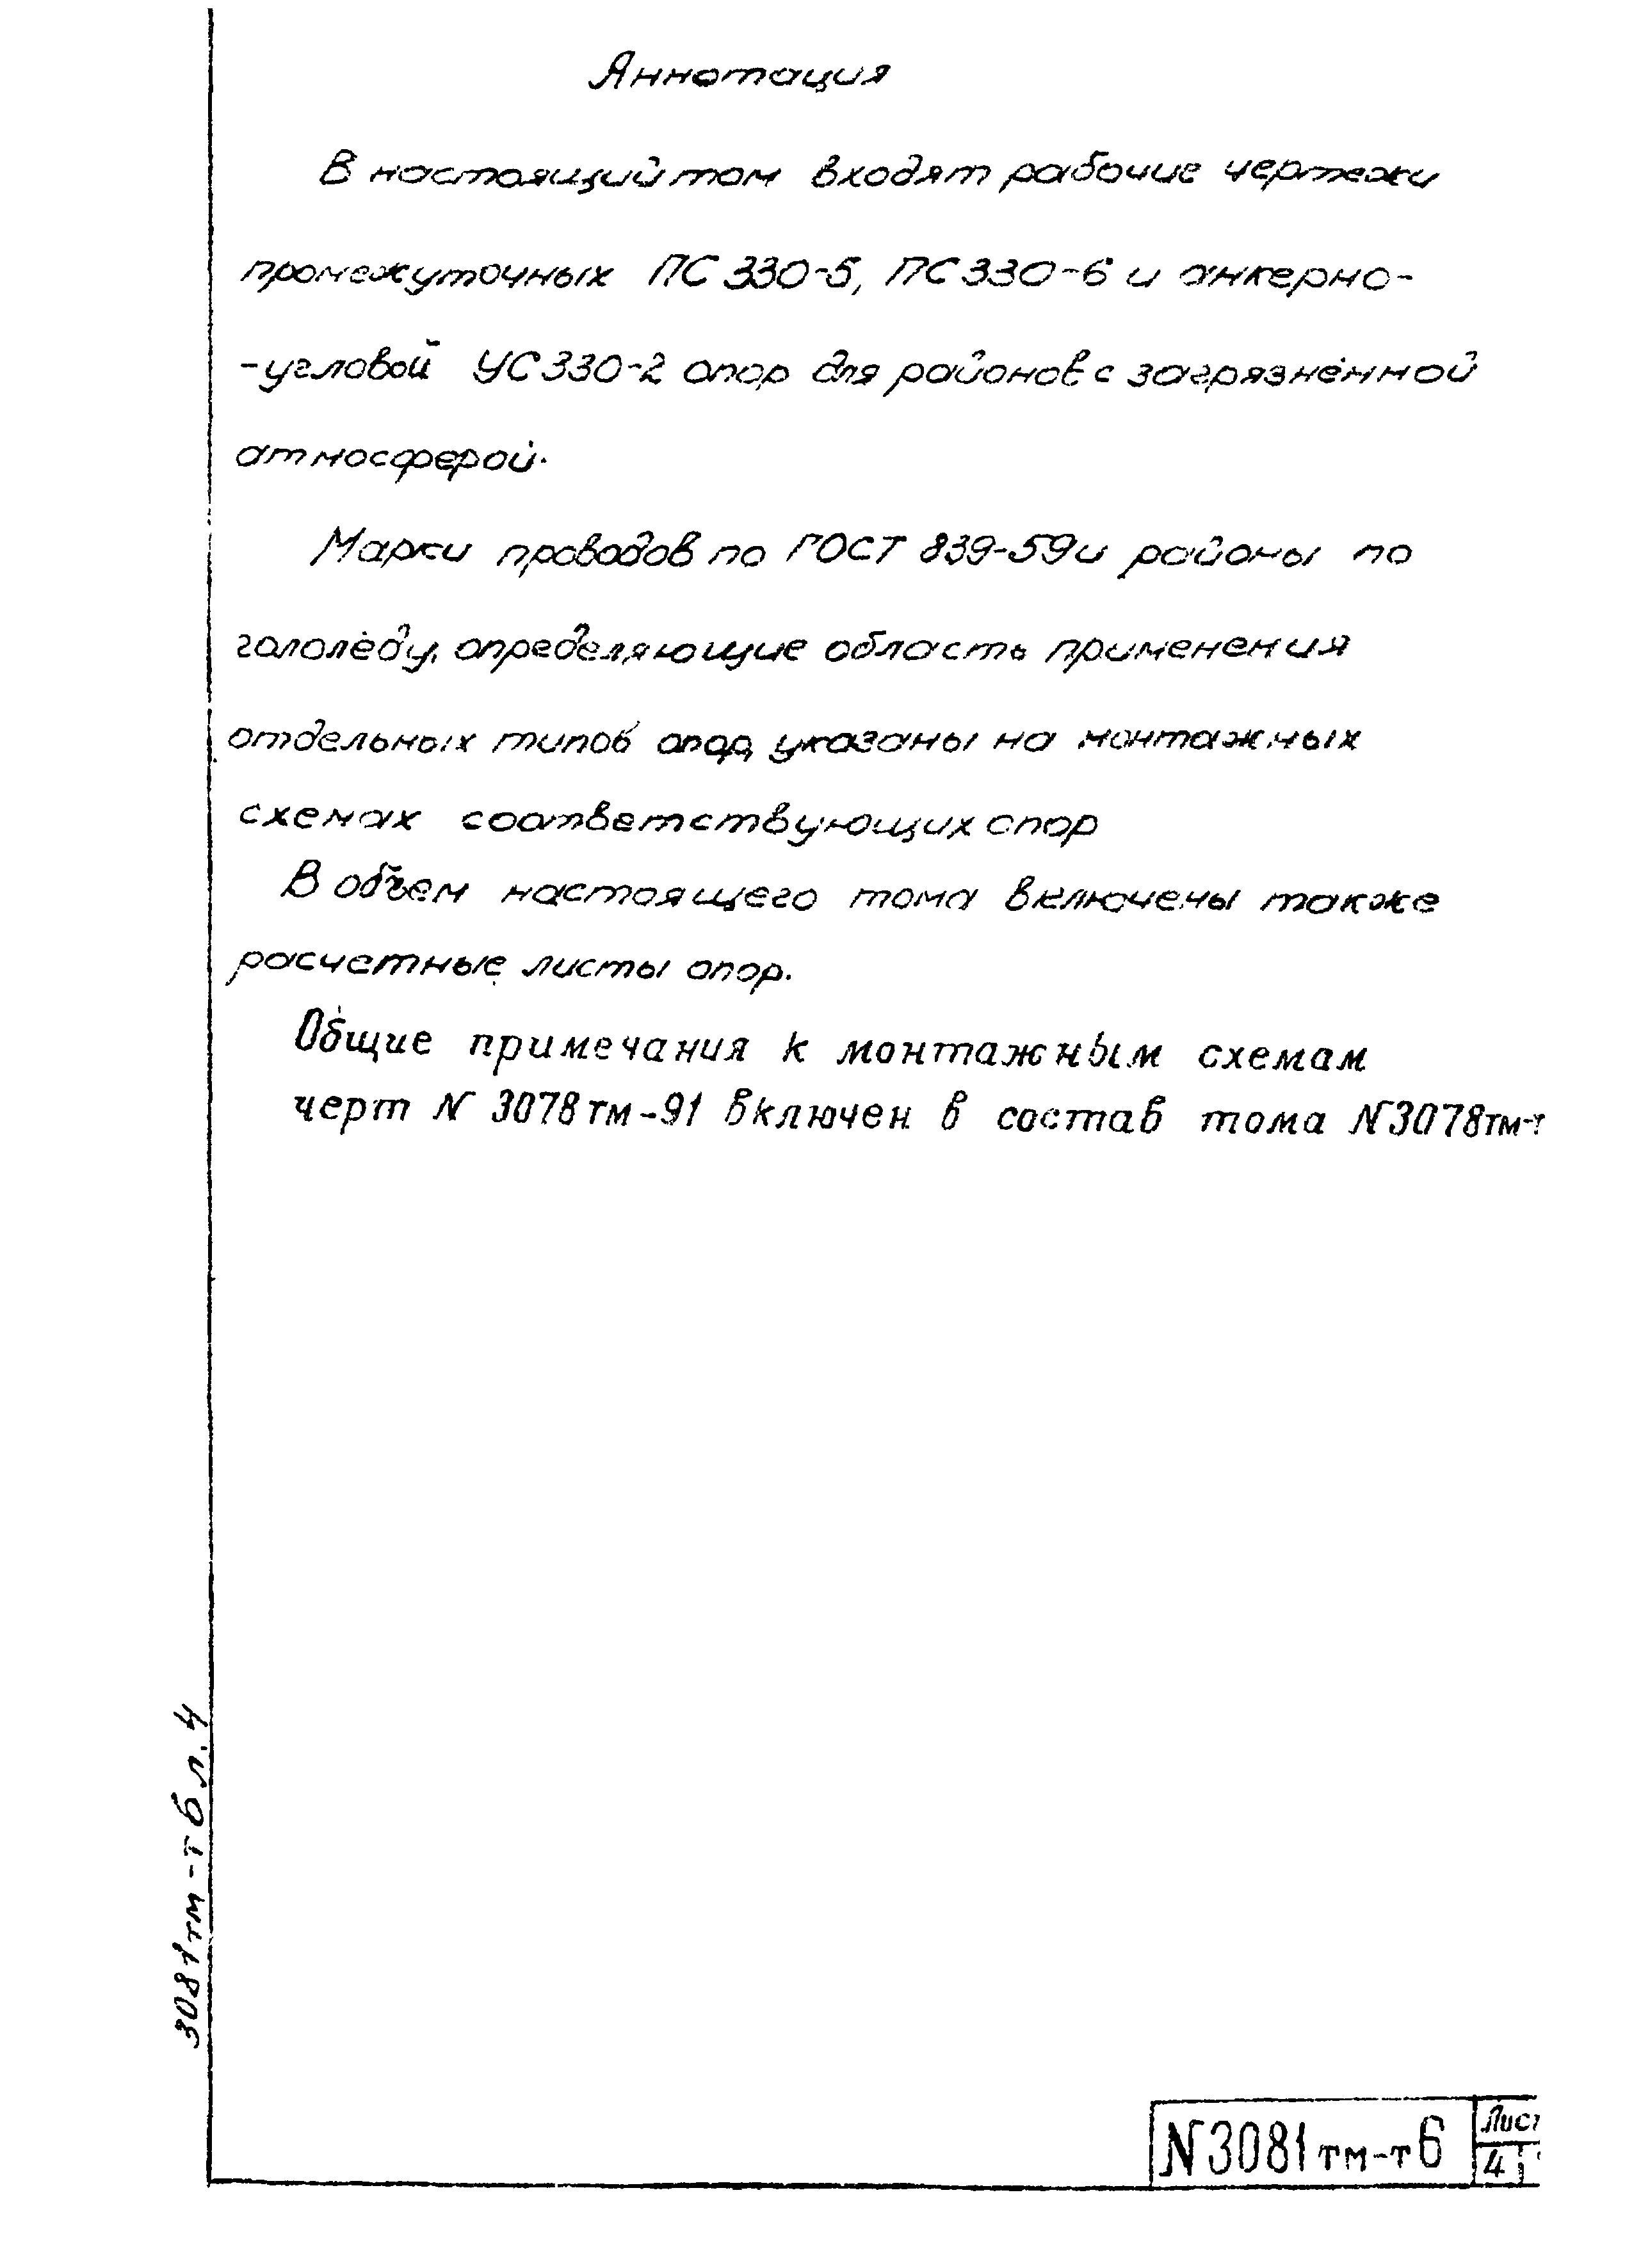 Аннотация
В настоящий том входят рабочие чертежи
промежуточных ПС 330-5, ПС 330-6 и анкерно-
-угловой УС 330-2 опор для районов с загрязнённой
атмосферой.
Марки проводов по ГОСТ 839-59 и районы по
гололёду, определяющие область применения
отдельных типов опор, указаны на монтажных
схемах соответствующих опор
В объем настоящего тома включены также
расчетные листы опор.
Общие примечания к монтажным схемам
черт N 3078тм-91 включен в состав тома N3078тм-т
3081тм-т6 л.4
N3081тм-т6
Лист
4